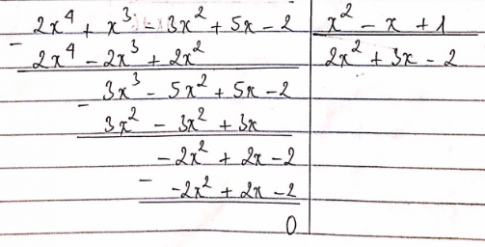 2x⁴ + x³ - 3x² + 5x - 2 | x² - x + 1
- 2x⁴ - 2x³ + 2x² | 2x² + 3x - 2
3x³ - 5x² + 5x - 2
- 3x² - 3x² + 3x
-2x² + 2x - 2
- -2x² + 2x - 2
0